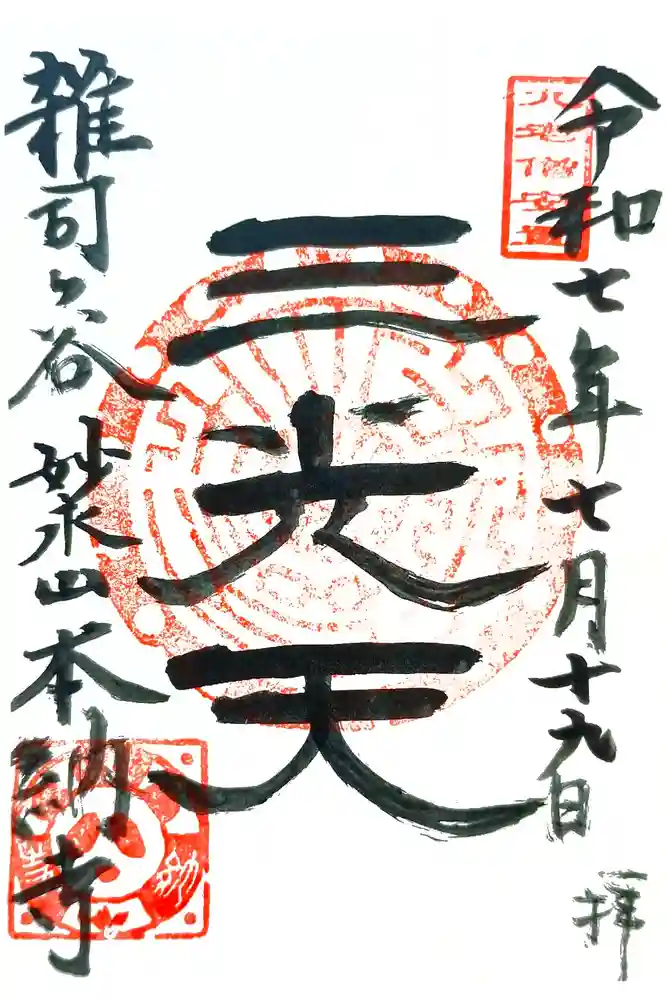 令和七年七月十九日
拝
三光天
雑司ヶ谷 妙永山本納寺